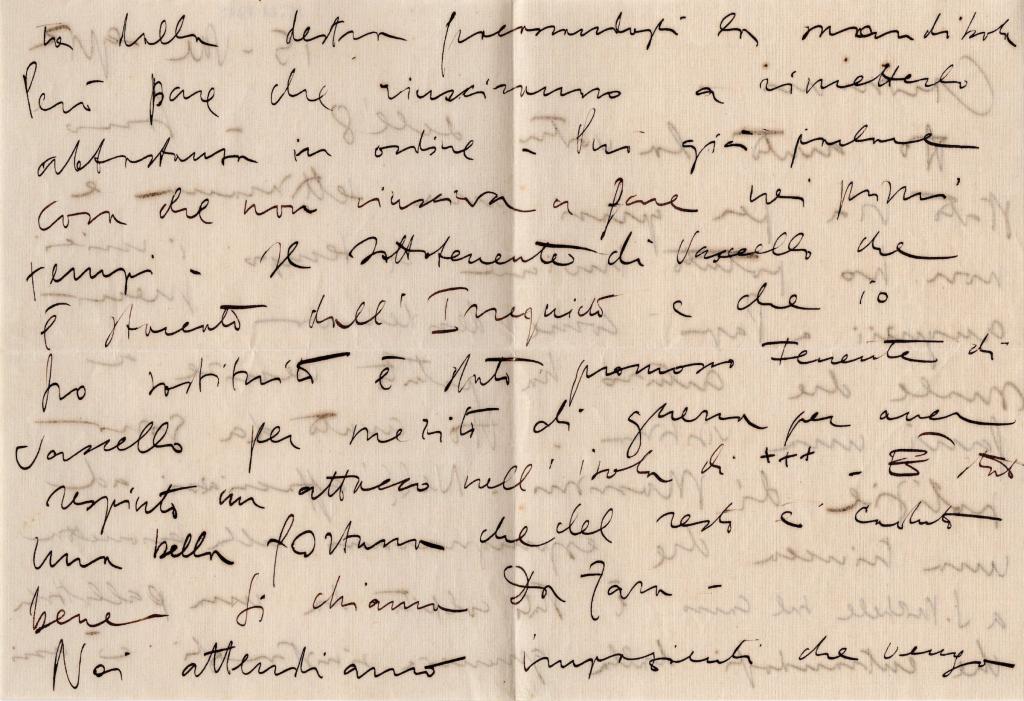 ta dalla destra fracassandogli la mandibola
Però pare che riusciranno a rimetterlo
abbastanza in ordine - Lui già parlare
cosa che non riusciva a fare nei primi
tempi - Il sottotenente di Vascello che
è sbarcato dall'Irrequieto e che io
ho sostituito è stato promosso Tenente di
Vascello per merito di guerra per aver
respinto un attacco nell'isola di +++ - È stata
una bella fortuna che del resto è caduta
bene - Si chiama Da Zara -
Noi attendiamo impazienti che venga